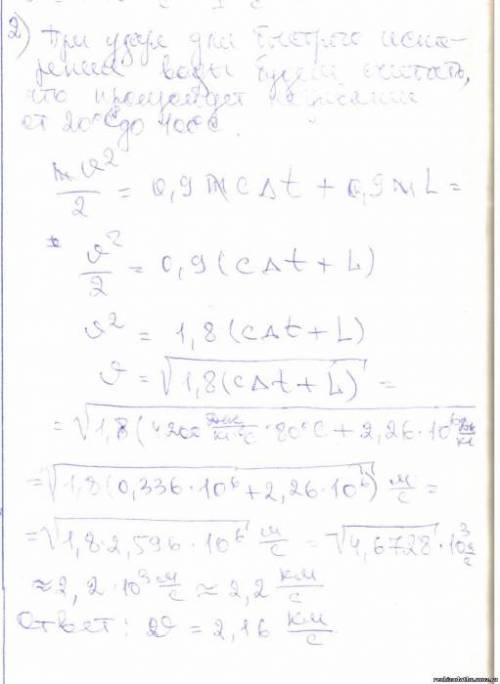 2) При ударе для быстрого испа-
рения воды будем считать,
что происходит нагревание
от 20°C до 100°C.
mϑ²/2 = 0,9mcΔt + 0,9mL =
ϑ²/2 = 0,9(cΔt + L)
ϑ² = 1,8(cΔt + L)
ϑ = √1,8(cΔt + L) =
= √1,8(4200 Дж/кг·°C · 80°C + 2,26·10⁶ Дж/кг
= √1,8(0,336·10⁶ + 2,26·10⁶) м/с =
= √1,8·2,596·10⁶ м/с = √4,6728·10³ м/с
≈ 2,2·10³ м/с ≈ 2,2 км/с
Ответ: ϑ = 2,16 км/с